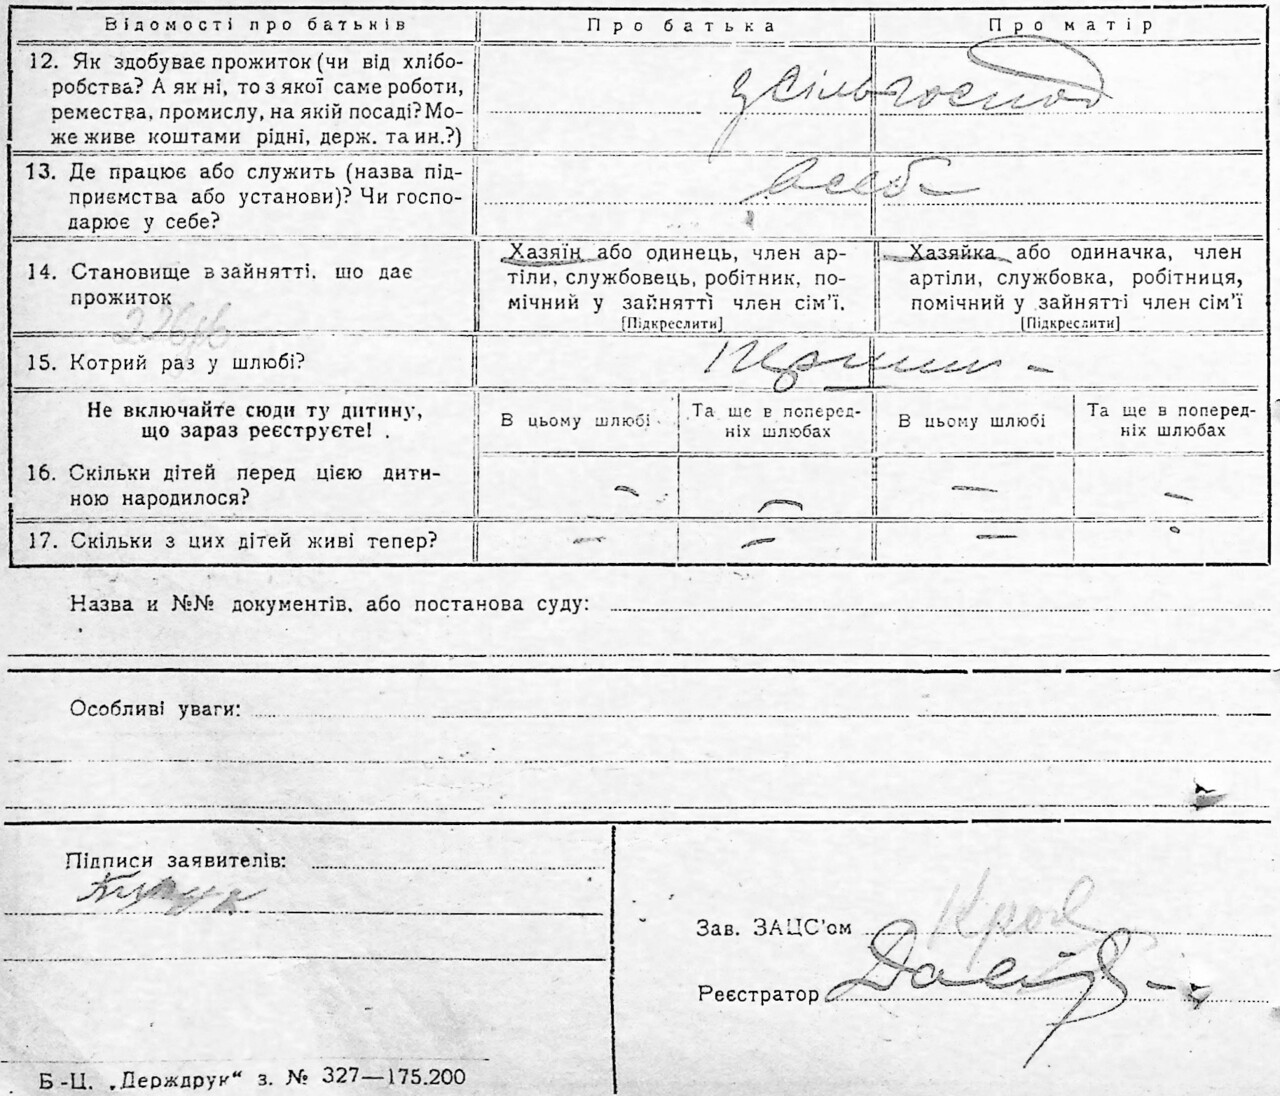 Відомості про батьків Про батька Про матір
12. Як здобуває прожиток (чи від хлібо-
робства? А як ні, то з якої саме роботи,
ремества, промислу, на якій посаді? Мо-
же живе коштами рідні, держ. та ин.?)
з сільгоспод
13. Де працює або служить (назва під-
приємства або установи)? Чи госпо-
дарює у себе?
в себе
14. Становище в зайнятті, що дає
прожиток
Хазяїн або одинець, член ар-
тіли, службовець, робітник, по-
мічний у зайнятті член сім'ї.
[Підкреслити]
Хазяйка або одиначка, член
артіли, службовка, робітниця,
помічний у зайнятті член сім'ї
[Підкреслити]
15. Котрий раз у шлюбі?
Не включайте сюди ту дитину,
що зараз реєструєте!
В цьому шлюбі
Та ще в поперед-
ніх шлюбах
В цьому шлюбі
Та ще в поперед-
ніх шлюбах
16. Скільки дітей перед цією дити-
ною народилося?
— — — —
17. Скільки з цих дітей живі тепер?
— — —
Назва и №№ документів, або постанова суду:
Особливі уваги:
Підписи заявителів:
Зав. ЗАЦС'ом
Реєстратор
Б-Ц. „Держдрук“ з. № 327—175.200